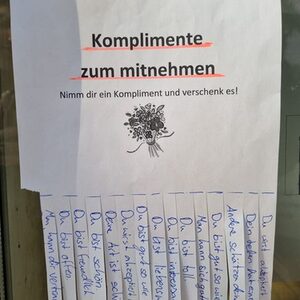 Komplimente
zum mitnehmen
Nimm dir ein Kompliment und verschenk es!
Man kann dir
Du bist offen
Du bist freundlich
Du bist schön
Deine Art ist
Du wirst akzeptiert
Du bist gut so wie
Du bist liebens
Du bist
Du bist toll
Man kann
Du bist gut so wie
Andere schätzen
Du wirst